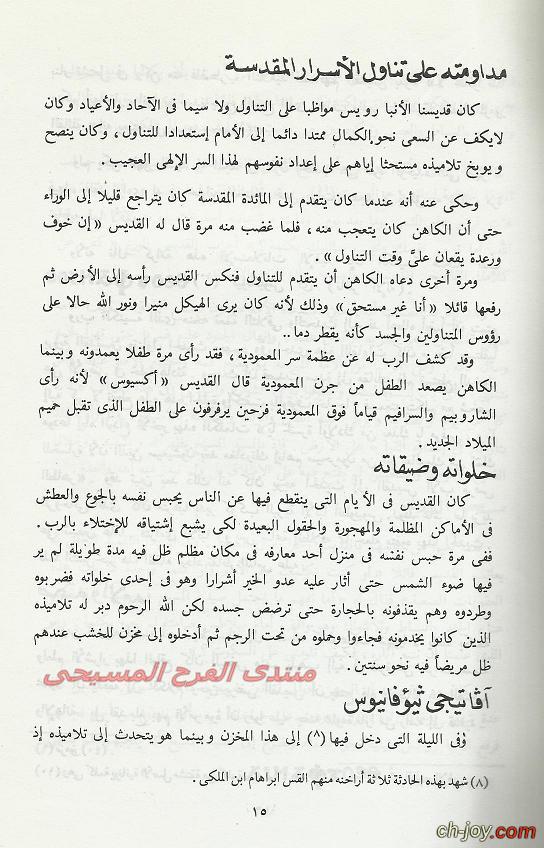 مداومته على تناول الأسرار المقدسة
كان قديسنا الأنبا رويس مواظبا على التناول ولا سيما فى الآحاد والأعياد وكان
لايكف عن السعى نحو الكمال ممتدا دائما إلى الأمام إستعدادا للتناول ، وكان ينصح
و يوبخ تلاميذه مستحثا إياهم على إعداد نفوسهم لهذا السر الإلهى العجيب .
وحكى عنه أنه عندما كان يتقدم إلى المائدة المقدسة كان يتراجع قليلاً إلى الوراء
حتى أن الكاهن كان يتعجب منه ، فلما غضب منه مرة قال له القديس « إن خوف
ورعدة يقعان علىَّ وقت التناول » .
ومرة أخرى دعاه الكاهن أن يتقدم للتناول فنكس القديس رأسه إلى الأرض ثم
رفعها قائلا « أنا غير مستحق » وذلك لأنه كان يرى الهيكل منيرا ونور الله حالا على
رؤوس المتناولين والجسد كأنه يقطر دما ..
وقد كشف الرب له عن عظمة سر المعمودية ، فقد رأى مرة طفلا يعمدونه و بينما
الكاهن يصعد الطفل من جرن المعمودية قال القديس « أكسيوس » لأنه رأى
الشاروبيم والسرافيم قياماً فوق المعمودية فرحين يرفرفون على الطفل الذى تقبل حميم
الميلاد الجديد .
خلواته وضيقاته
كان القديس فى الأيام التى ينقطع فيها عن الناس يحبس نفسه بالجوع والعطش
فى الأماكن المظلمة والمهجورة والحقول البعيدة لكى يشبع إشتياقه للإختلاء بالرب .
ففى مرة حبس نفسه فى منزل أحد معارفه فى مكان مظلم ظل فيه مدة طويلة لم ير
فيها ضوء الشمس حتى أثار عليه عدو الخير أشرارا وهو فى إحدى خلواته فضربوه
وطردوه وهم يقذفونه بالحجارة حتى ترضض جسده لكن الله الرحوم دبر له تلاميذه
الذين كانوا يخدمونه فجاءوا وحملوه من تحت الرجم ثم أدخلوه إلى مخزن للخشب عندهم
ظل مريضاً فيه نحو سنتين .
منتدى الفرح المسيحى
آڤاتيجى ثيؤفانيوس
وفى الليلة التى دخل فيها (٨) إلى هذا المخزن و بينما هو يتحدث إلى تلاميذه إذ
(٨) شهد بهذه الحادثة ثلاثة أراخنه منهم القس ابراهام ابن الملكى .
١٥
ch-joy.com